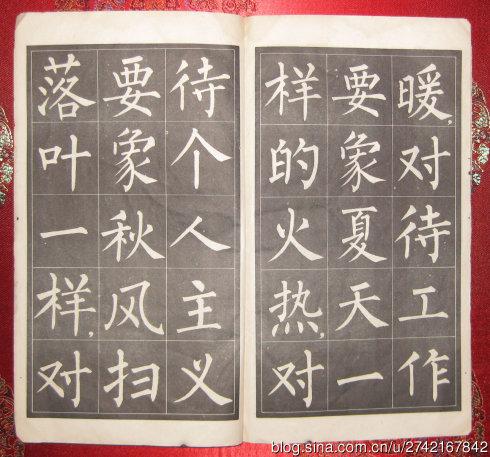 暖，对待工作
要象夏天一
样的火热，对
待个人主义
要象秋风扫
落叶一样，对
blog.sina.com.cn/u/2742167842